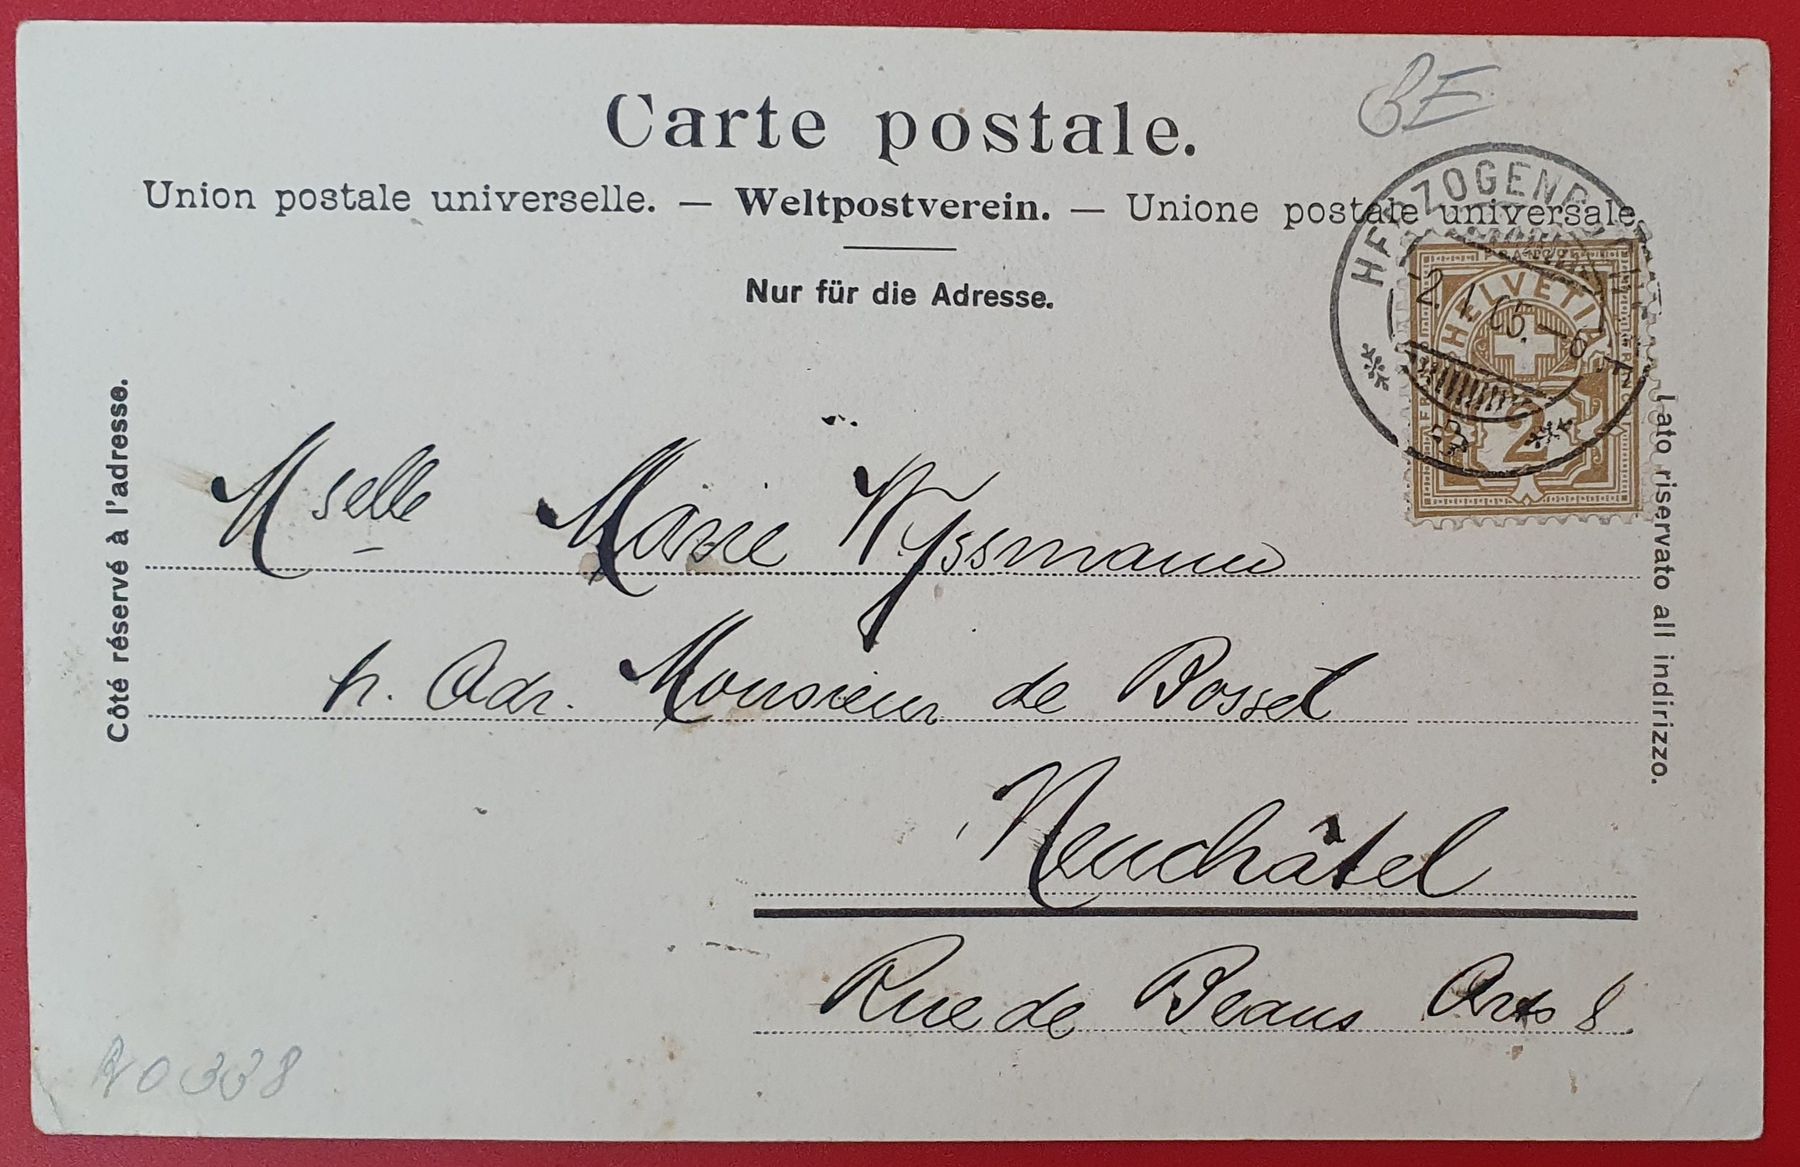 BE
Carte postale.
Union postale universelle. — Weltpostverein. — Unione postale universale.
Nur für die Adresse.
HERZOGENB
-2.I.05.
HELVETIA
FRANCO
2
Côté réservé à l'adresse.
Lato riservato all indirizzo.
Mselle Marie Wyssmann
h. Adr. Monsieur de Bosset
Neuchâtel
Rue de Beaux Arts 8.
0338